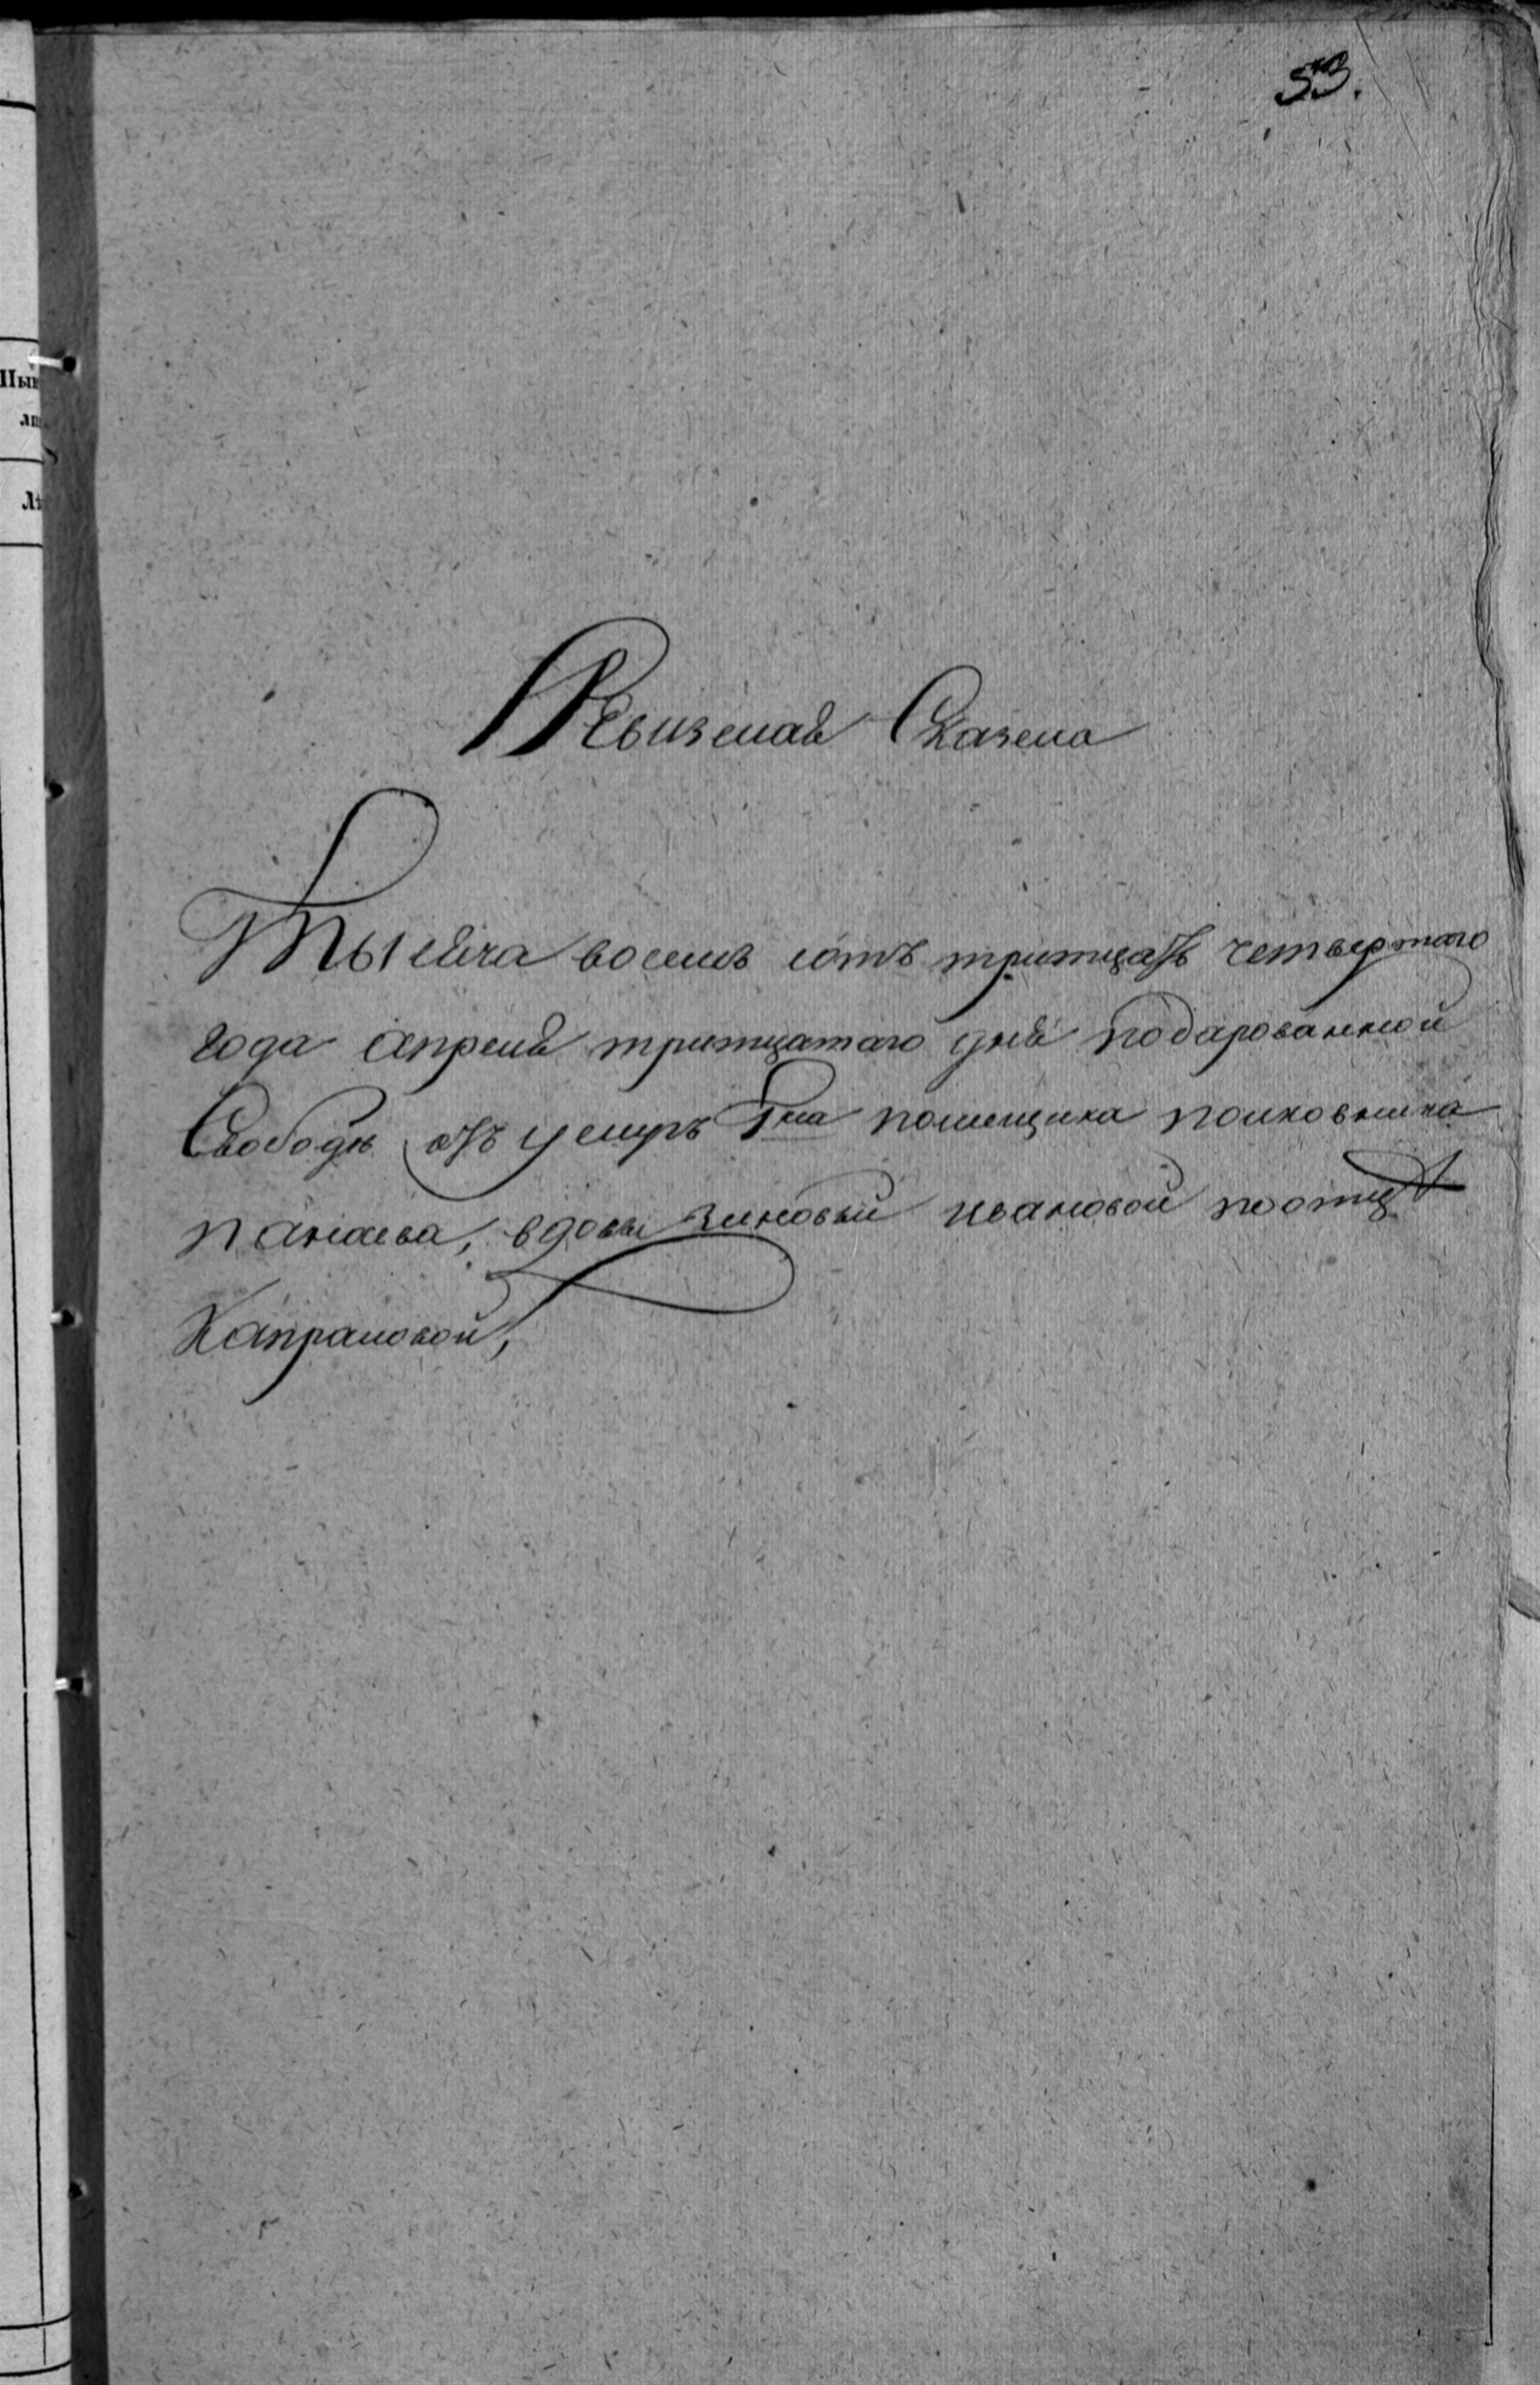 53.
Ревизская Сказка
Тысяча восемь сотъ тритцать четвертаго
года апреля тритцатаго дня подарованной
Свободѣ отъ умеръ Гна помещика полковника
панаева, вдовы Зиновьи ивановой поотцѣ
Капраловой,